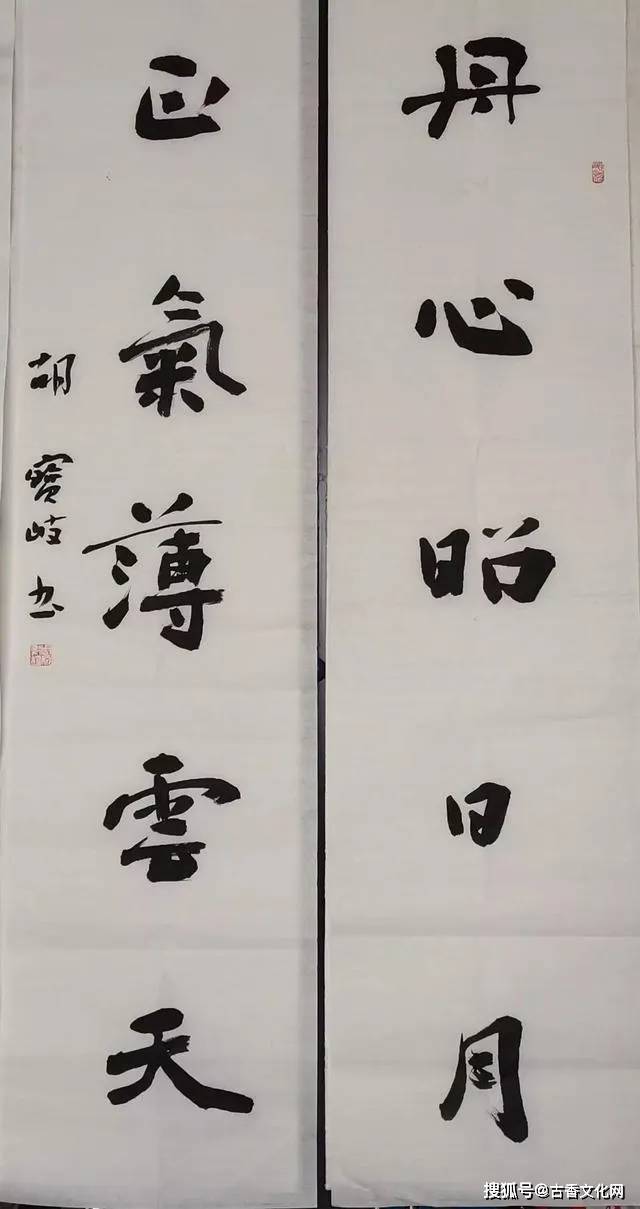 丹心昭日月
正氣薄雲天
胡寶岐书
搜狐号@古香文化网